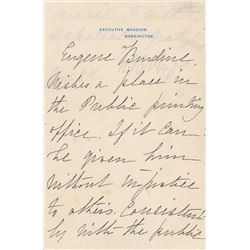 EXECUTIVE MANSION,
WASHINGTON.
Eugene
Wishes a place in
the Public printing
office. If it can
be given him
without injustice
to others. Consistent
ly with the public